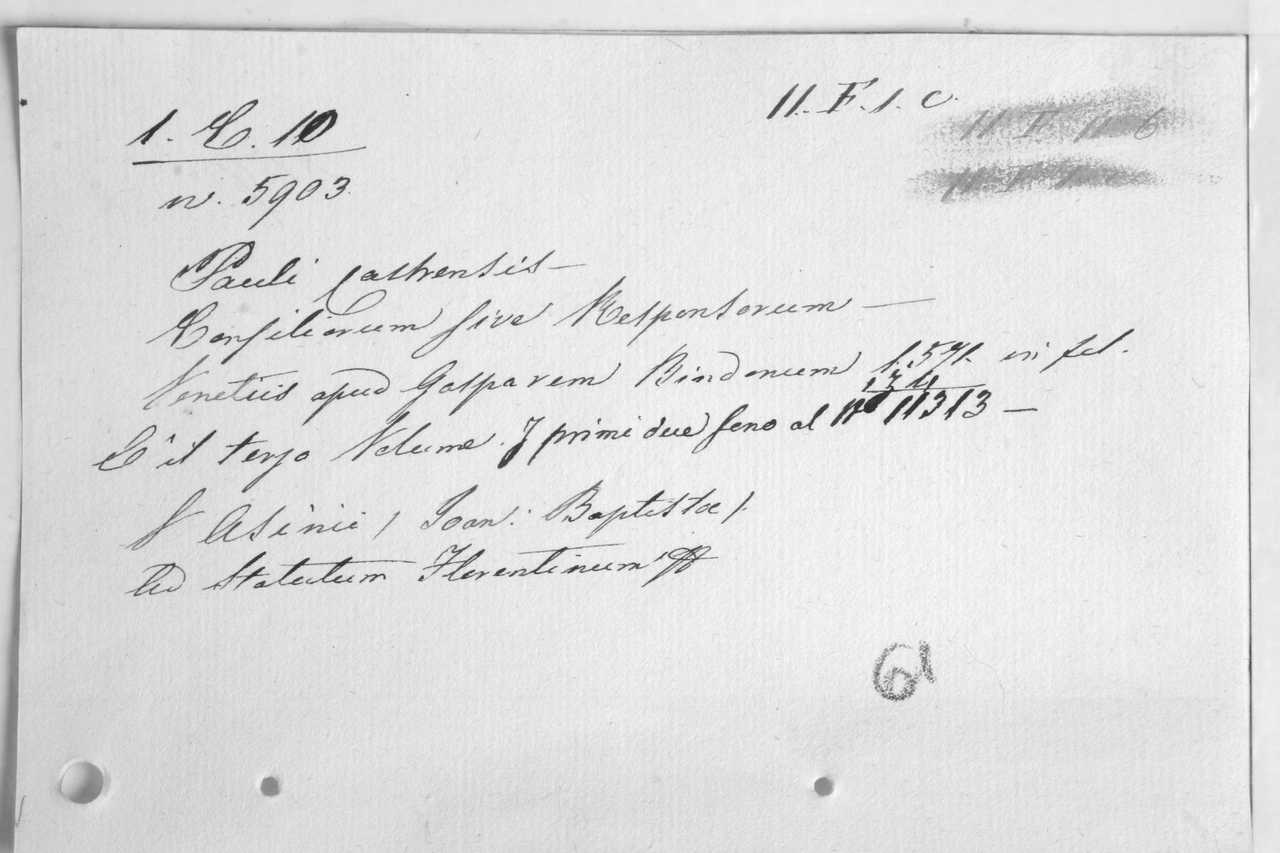 1. C. 10
11. F. 1. C.
n. 5903
Pauli Castrensis —
Consiliorum sive Responsorum —
Venetiis apud Gasparem Bindonum 1571. in fol.
È il terzo Volume. I primi due sono al 11313 —
Asinii / Joan: Baptistæ /.
Ad Statutum Florentinum
61